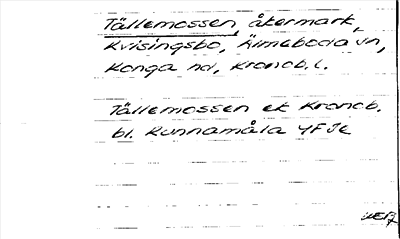 Tällemossen, åkermark,
Kvisingsbo, Älmeboda sn,
Konga hd, Kronob. l.
Tällemossen ek Kronob.
bl. Kunnamåla 4F Je